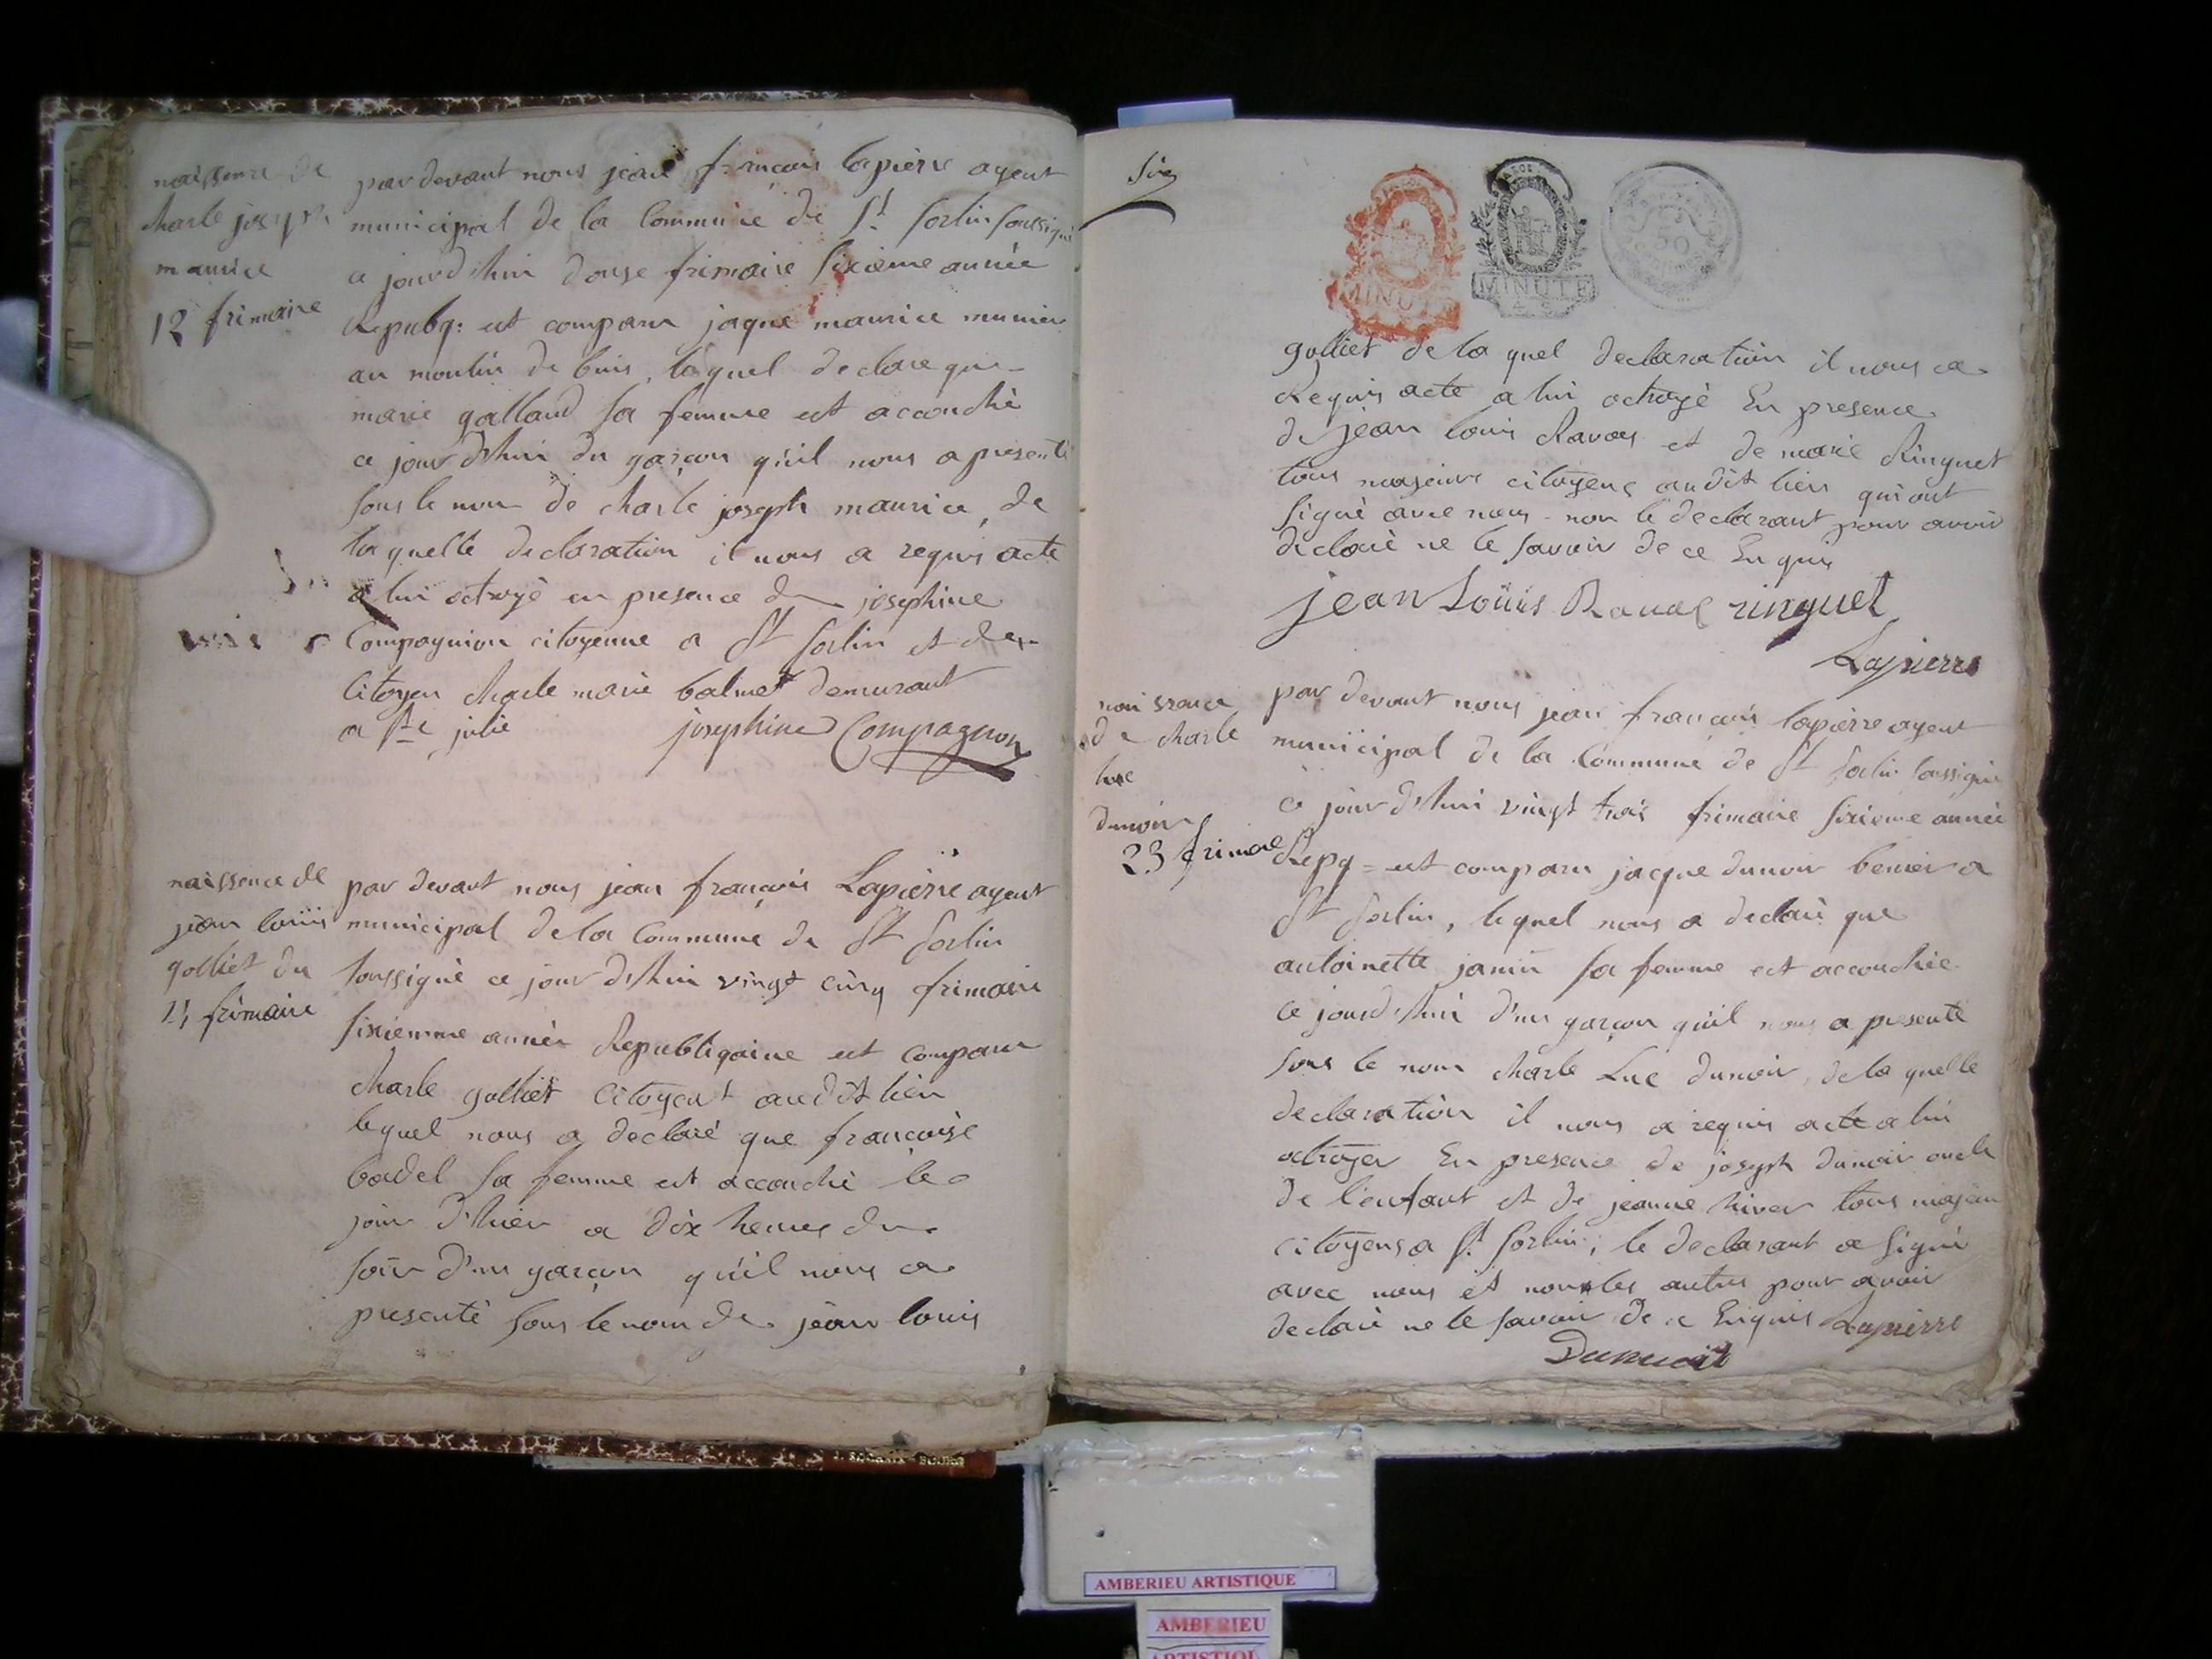 naissence de
charle joseph
maurice
12 frimaire
par devant nous jean francois lapierre agent
municipal de la Commune de St Sorlin soussigné
ce jourd'hui douse frimaire sixieme année
Repubq: est comparu jaque maurice munier
au moulin de buis, lequel declare que
marie galland sa femme est accouché
ce jourd'hui du garçon qu'il nous a presenté
sous le nom de charle joseph maurice, de
laquelle declaration il nous a requis acte
a lui octroyé en presence de josephine
Compagnion citoyenne a St Sorlin et de
Citoyen charle marie balmet demurant
a Ste julie
josephine Compagnon
naissence de
jean louis
golliet du
frimaire
par devant nous jean françois Lapierre agent
municipal de la Commune de St Sorlin
soussigné ce jour d'hui vingt cinq frimaire
sixiemme année Republiqaine est comparu
charle golliet Citoyent audit lieu
lequel nous a declaré que francoise
badel sa femme est accouché le
jour d'hier a dix heures du
soir d'un garçon qu'il nous a
presenté sous le nom de jean louis
six
MINUTE
MINUTE
50
golliet de la quel declaration il nous a
Requis acte a lui octroyé En presence
de jean louis Ravas et de marie Ringuet
tous majeurs citoyens audit lieu qui ont
signé avec nous non le declarant pour avoir
declaré ne le savoir de ce Enquis
jean Louis Ravas ringuet
Lapierre
naissance
de charle
luc
dunoir
23 frimaire
par devant nous jean francois lapierre agent
municipal de la Commune de St Sorlin soussigné
ce jour d'hui vingt trois frimaire sixieme année
Repq = est comparu jacque dunoir benier a
St Sorlin, lequel nous a declaré que
antoinette janin sa femme est accouchée
ce jourd'hui d'un garçon qu'il nous a presenté
sous le nom charle Luc dunoir, de la quelle
declaration il nous a requis acte a lui
octroyer En presence de joseph dunoir oncle
de l'enfant et de jeanne hiver tous majeur
citoyens a St Sorlin; le declarant a signé
avec nous et non les autres pour avoir
declaré ne le savoir de ce Enquis Lapierre
Dunoir
AMBERIEU ARTISTIQUE
AMBERIEU
ARTISTIQUE